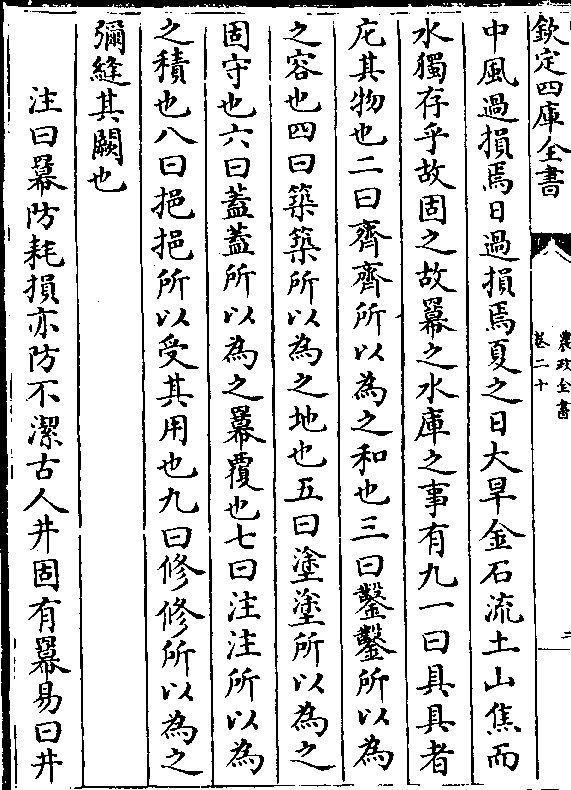 欽定四庫全書
農政全書
卷二十
二
中風過損焉日過損焉夏之日大旱金石流土山焦而
水獨存乎故固之故羃之水庫之事有九一曰具具者
庀其物也二曰齊齊所以為之和也三曰鑿鑿所以為
之容也四曰築築所以為之地也五曰塗塗所以為之
固守也六曰蓋蓋所以為之羃覆也七曰注注所以為
之積也八曰挹挹所以受其用也九曰修修所以為之
彌縫其闕也
注曰羃防耗損亦防不潔古人井固有羃易曰井